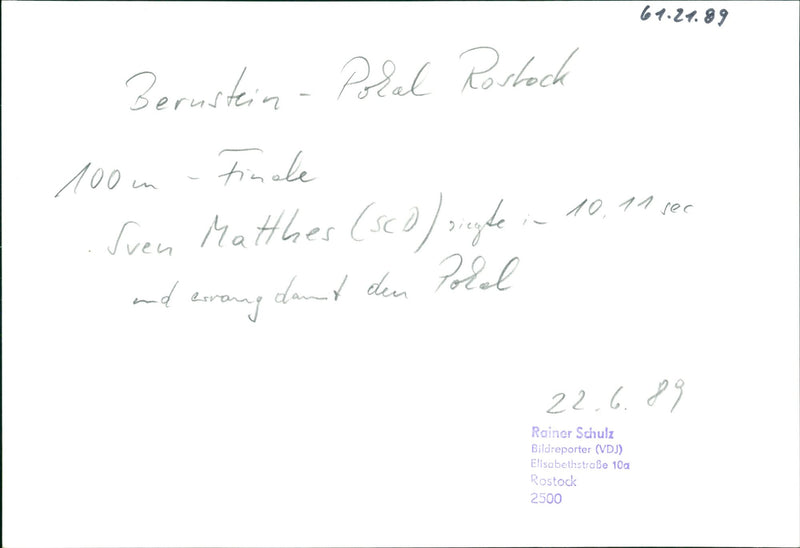 61.21.89
Bernstein - Pokal Rostock
100 m - Finale
Sven Matthes (SCD) siegte in 10,11 sec
und errang damit den Pokal
22.6.89
Rainer Schulz
Bildreporter (VDJ)
Elisabethstraße 10a
Rostock
2500